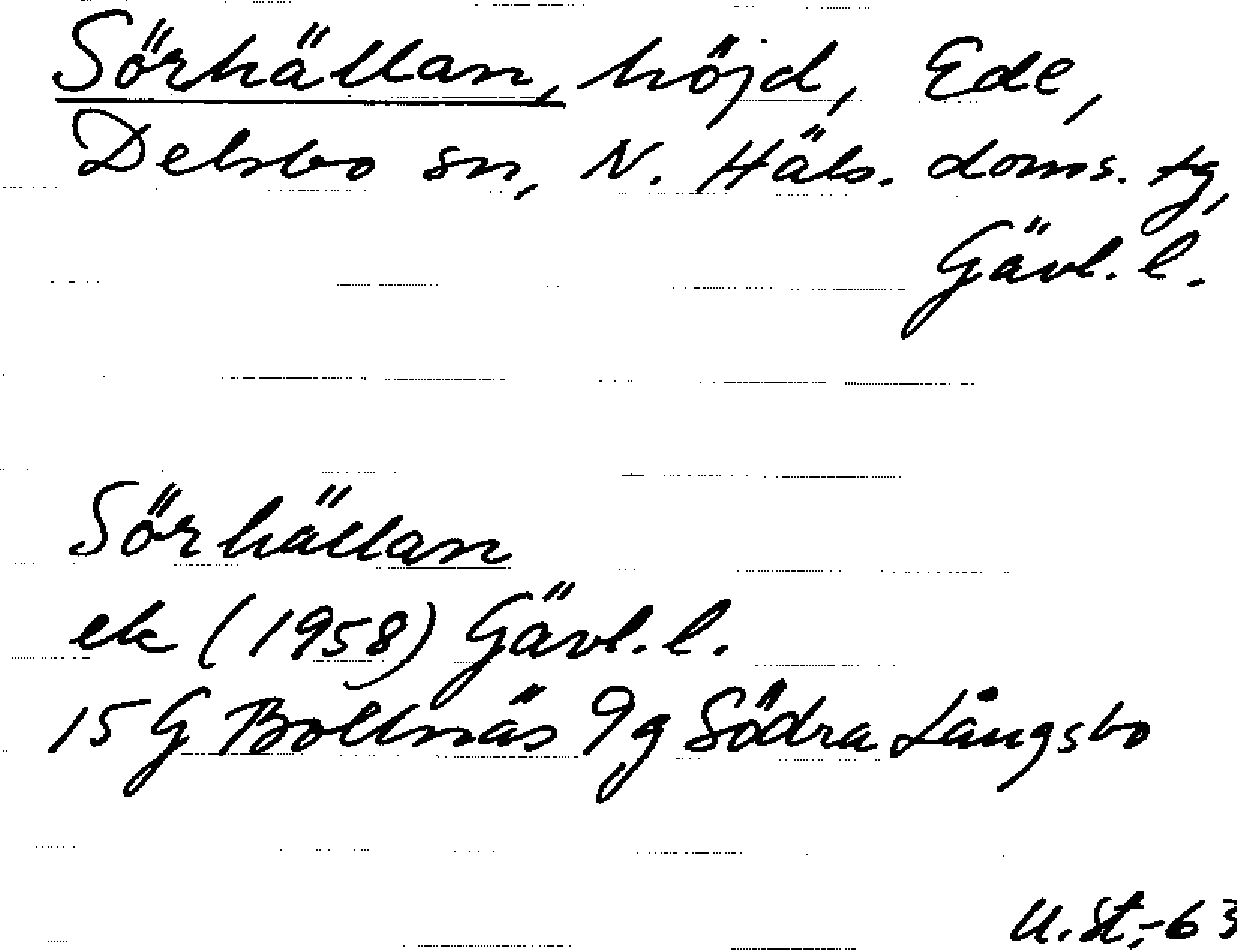 Sörhällan, höjd, Ede,
Delsbo sn, N. Häls. doms. tg,
Gävl. l.
Sörhällan
ek (1958) Gävl. l.
15 G Bollnäs 9g Södra Långsbo
U.St.-63